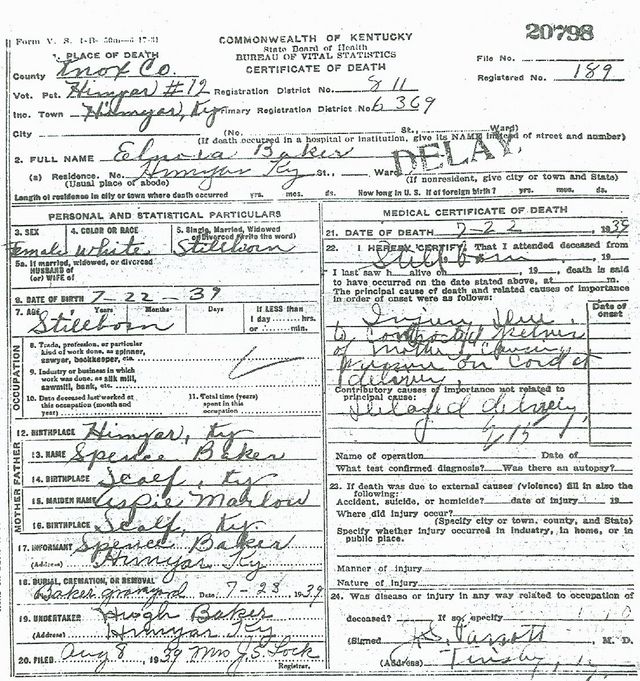 Form V. S. 1-B
20798
COMMONWEALTH OF KENTUCKY
State Board of Health
BUREAU OF VITAL STATISTICS
CERTIFICATE OF DEATH
File No.
Registered No. 189
1. PLACE OF DEATH
County Knox Co.
Vot. Pct. Himyar #12 Registration District No. 811
Inc. Town Himyar, Ky Primary Registration District No. 6369
City (No. St., Ward)
(If death occurred in a hospital or institution, give its NAME instead of street and number)
2. FULL NAME Elnora Baker
DELAY.
(a) Residence. No. Himyar Ky St., Ward
(Usual place of abode) (If nonresident, give city or town and State)
Length of residence in city or town where death occurred yrs. mos. ds. How long in U. S. if of foreign birth? yrs. mos. ds.
PERSONAL AND STATISTICAL PARTICULARS
3. SEX 4. COLOR OR RACE 5. Single, Married, Widowed or Divorced (write the word)
Female White Stillborn
5a. If married, widowed, or divorced
HUSBAND of
(or) WIFE of
6. DATE OF BIRTH 7-22-39
7. AGE Years Months Days If LESS than
1 day hrs.
or min.
Stillborn
OCCUPATION
8. Trade, profession, or particular
kind of work done, as spinner,
sawyer, bookkeeper, etc.
9. Industry or business in which
work was done, as silk mill,
sawmill, bank, etc.
10. Date deceased last worked at
this occupation (month and
year)
11. Total time (years)
spent in this
occupation
12. BIRTHPLACE Himyar, Ky
FATHER
13. NAME Spence Baker
14. BIRTHPLACE Scalf, Ky
MOTHER
15. MAIDEN NAME Marlow
16. BIRTHPLACE Scalf, Ky
17. INFORMANT Spence Baker
(Address) Himyar Ky
18. BURIAL, CREMATION, OR REMOVAL
Baker graveyard Date 7-23 1939
19. UNDERTAKER Hugh Baker
(Address) Himyar Ky
20. FILED Aug 8, 1939 Mrs J.S. Lock
Registrar.
MEDICAL CERTIFICATE OF DEATH
21. DATE OF DEATH 7-22, 1939
22. I HEREBY CERTIFY, That I attended deceased from
Stillborn, 19
I last saw h alive on , 19 , death is said
to have occurred on the date stated above, at m.
The principal cause of death and related causes of importance
in order of onset were as follows:
Date of
onset
Injury due
to contracted Pelvis
of mother causing
pressure on Cord at
delivery
Contributory causes of importance not related to
principal cause:
Delayed delivery
Name of operation Date of
What test confirmed diagnosis? Was there an autopsy?
23. If death was due to external causes (violence) fill in also the
following:
Accident, suicide, or homicide? date of injury 19
Where did injury occur?
(Specify city or town, county, and State)
Specify whether injury occurred in industry, in home, or in
public place.
Manner of injury
Nature of injury
24. Was disease or injury in any way related to occupation of
deceased? If so, specify
(Signed) Parrott M. D.
(Address)